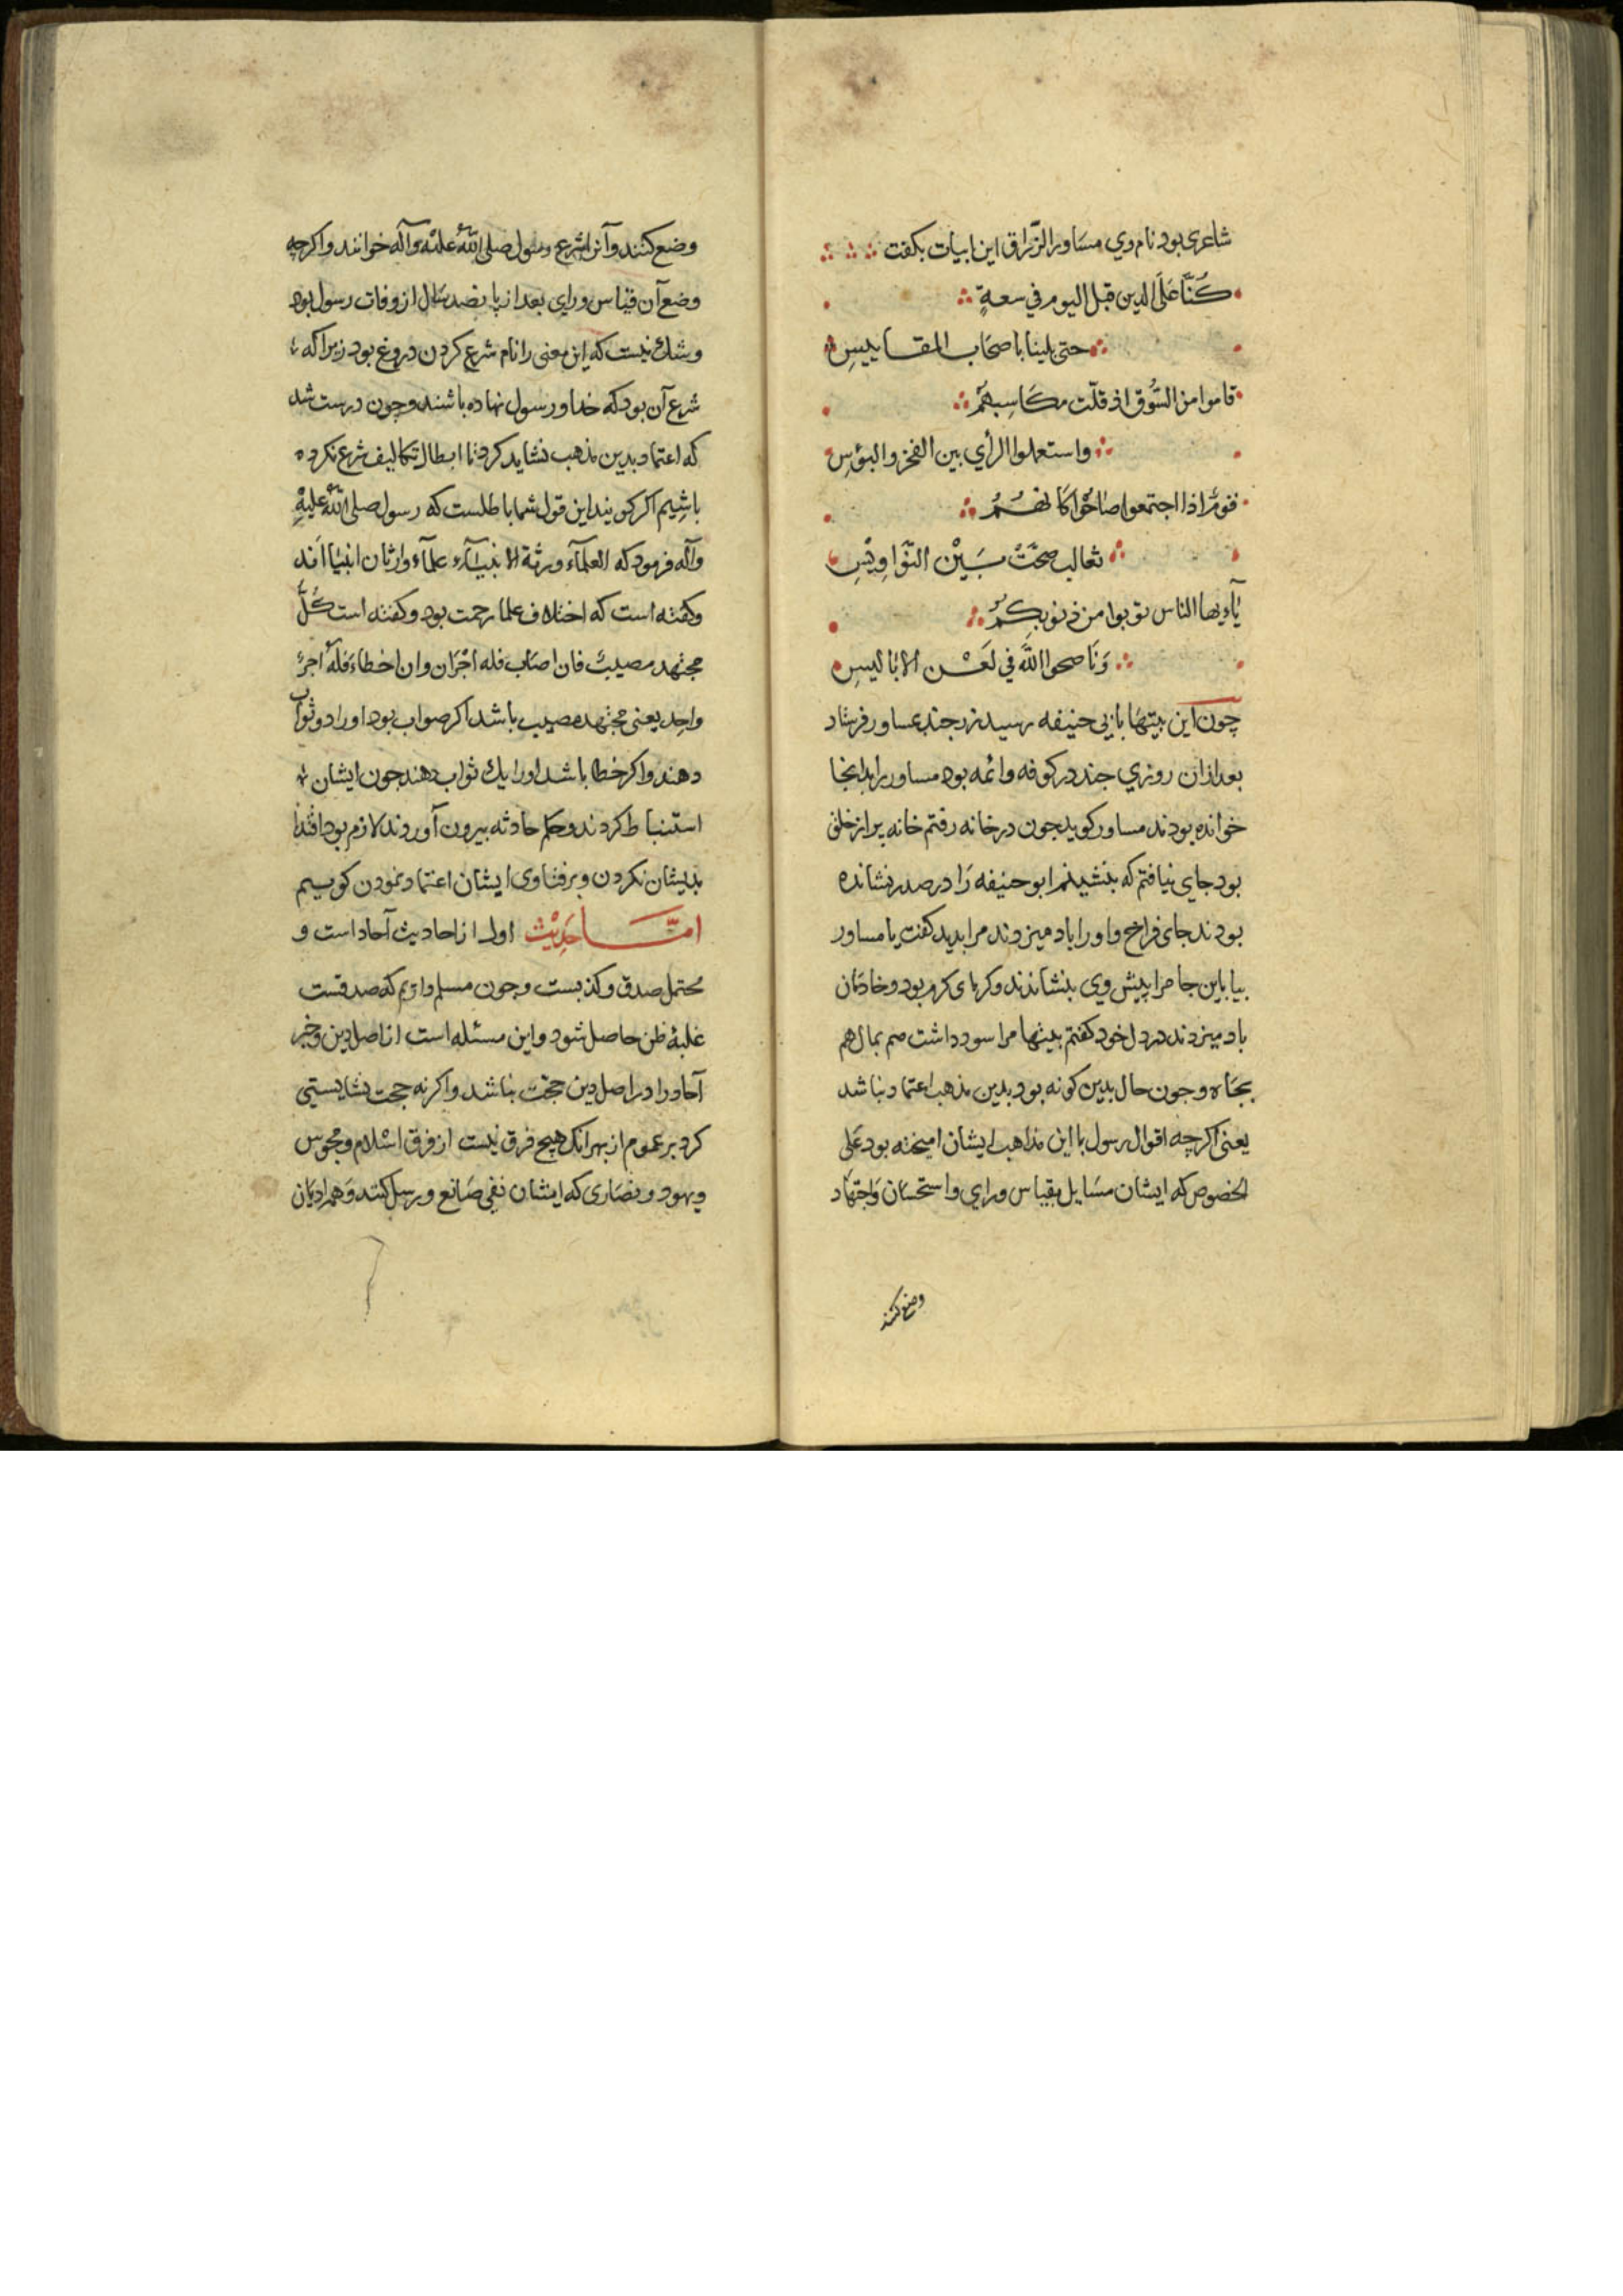 شاعری بود نام وي مساور الزّراق این ابیات بكفت
كُنَّا عَلَى الدين قبل اليوم في سعةٍ
حتى بلينا باصحاب المقاييسِ
قاموا من السُّوق اذ قلّت مكَاسِبهُم
واستعملوا الرأي بين الفخر والبؤسِ
قومٌ اذا اجتمعوا صاحُوا كانهُمُ
ثعالب ضحَّتْ بَيْن النَّوَاوِيْسِ
يٰآءيها الناس توبوا من ذنوبِكمُ
وَنَاصحوا اللّٰه في لَعْن الابَاليسِ
چون این بیتهَا بابی حنیفه رسید زر جند بمساور فرستاد
بعد ازان روزي جند در كوفه وائمه بود مساور را بدانجا
خوانده بودند مساور كوید جون در خانه رفتم خانه پر از خلق
بود جاي نیافتم كه بنشینم ابو حنیفه رَا در صدر نشانده
بودند جای فراخ و او را باد میزدند مرا بدید كفت یا مساور
بیا باین جا مرا پیش وي بنشاندند و كرمای كرم بود و خادمَان
باد میزدند در دل خود كفتم بیتها مرا سود داشت هم بمال هم
بجَاه و جون حال بدین كونه بود بدین مذهب اعتماد نباشد
یعنی اكر چه اقوال رسول با این مذاهب ایشان امیخته بود عَلَی
الخصوص كه ایشان مسَایل بقیاس و راي و استحسَان وَ اجتهَاد
وضع كنند
وضع كنند و آنرا شرع رسول صلى اللّٰهُ عليْه وآله خوانند و اكر چه
وضع آن قیاس و راي بعد از پانصد سَال از وفات رسول بود
و شك نیست كه این معنی را نام شرع كردن دروغ بود زیرا كه
شرع آن بود كه خدا و رسول نهاده باشند و چون درست شد
كه اعتماد بدین مذهب نشاید كرد تا ابطال تكالیف شرع نكرده
باشِیم اكر كویند این قول شما باطلست كه رسول صلى اللّٰه عليهِ
وآله فرمود كه العلمآء ورثة الانبيآء علمآء وارثان انبیااَند
و كفته است كه اختلاف علما رحمت بود و كفته است كُلُّ
مجتهد مصيبٌ فان اصَاب فله اجْرَان وان اخطاءَ فلهُ اجرٌ
واحِد یعنی مجتهد مصیب باشد اكر صواب بود او را دو ثواب
دهند و اكر خطا باشد او را یك ثواب دهند جون ایشان
استنباط كردند و حكم حادثه بیرون آوردند لازم بود اقتدا
بدیشان كردن و بر فتاوی ایشان اعتماد نمودن كوییم
امَّا حَدِيْث اول از احادیث آحاد است و
محتمل صدق و كذبست و جون مسلم داریم كه صدقست
غلبهٔ ظن حاصل شود و این مسئله است از اصل دین و خبر
آحاد را در اصل دین حجّت نباشد و اكر نه حجت نشایستی
كرد بر عموم از بهر انك هیچ فرق نیست از فرق اسْلام و مجوس
و یهود و نصَاری كه ایشان نفی صَانع و رسل كنند وَ هم ادیَان